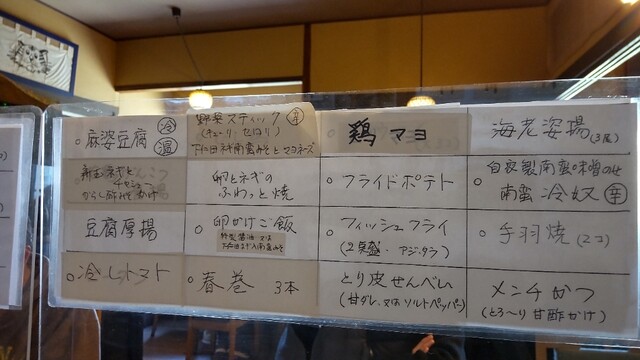 麻婆豆腐 冷 温
野菜スティック 辛
(きゅーり、せロリ)
鶏マヨ
海老姿揚(3尾)
新玉ネギと
からし酢みそかけ
卵とネギの
ふわっと焼
フライドポテト
自家製南蛮味噌のせ
南蛮冷奴 辛
豆腐厚揚
卵かけご飯
特製醤油又は
フィッシュフライ
手羽焼(2コ)
冷しトマト
春巻 3本
とり皮せんべい
(甘ダレ、又はソルトペッパー)
メンチかつ
(とろ〜り甘酢かけ)